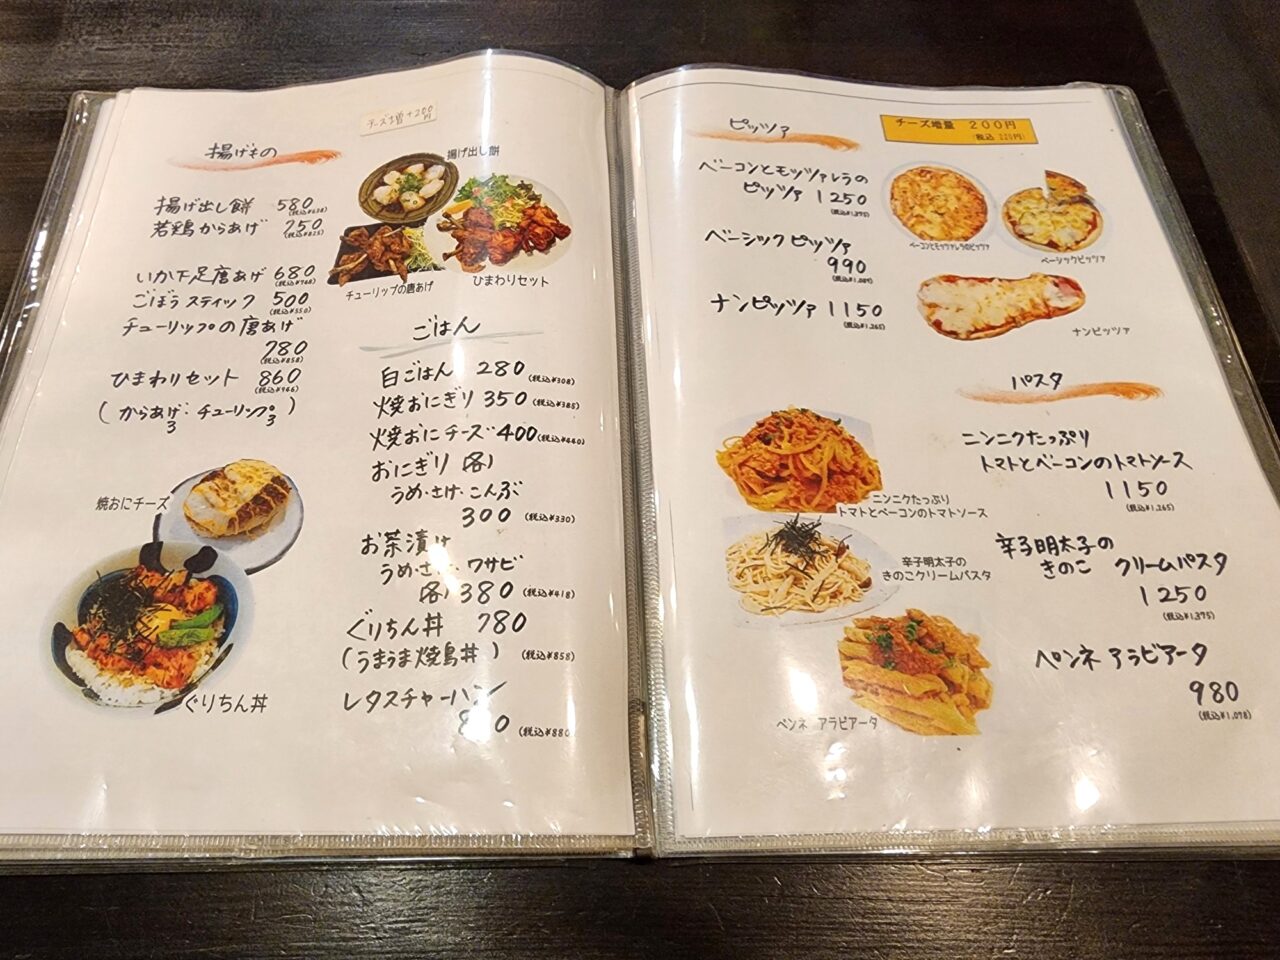 チーズ増+200円
揚げもの
揚げ出し餅 580
(税込¥638)
若鶏からあげ 750
(税込¥825)
いか下足唐あげ 680
(税込¥748)
ごぼうスティック 500
(税込¥550)
チューリップの唐あげ
780
(税込¥858)
ひまわりセット 860
(税込¥946)
(からあげ:3 チューリップ3)
揚げ出し餅
チューリップの唐あげ
ひまわりセット
焼おにチーズ
ぐりちん丼
ごはん
白ごはん 280 (税込¥308)
焼おにぎり 350 (税込¥385)
焼おにチーズ 400 (税込¥440)
おにぎり(各)
うめ・さけ・こんぶ
300 (税込¥330)
お茶漬け
うめ・さけ・ワサビ
(各) 380 (税込¥418)
ぐりちん丼 780
(うまうま焼鳥丼) (税込¥858)
レタスチャーハン
(税込¥880)
ピッツァ
チーズ増量 200円
(税込 220円)
ベーコンとモッツァレラの
ピッツァ 1250
(税込¥1,375)
ベーシックピッツァ
990
(税込¥1,089)
ナンピッツァ 1150
(税込¥1,265)
ベーコンとモッツァレラのピッツァ
ベーシックピッツァ
ナンピッツァ
パスタ
ニンニクたっぷり
トマトとベーコンのトマトソース
1150
(税込¥1,265)
辛子明太子の
きのこ クリームパスタ
1250
(税込¥1,375)
ペンネ アラビアータ
980
(税込¥1,078)
ニンニクたっぷり
トマトとベーコンのトマトソース
辛子明太子の
きのこクリームパスタ
ペンネ アラビアータ